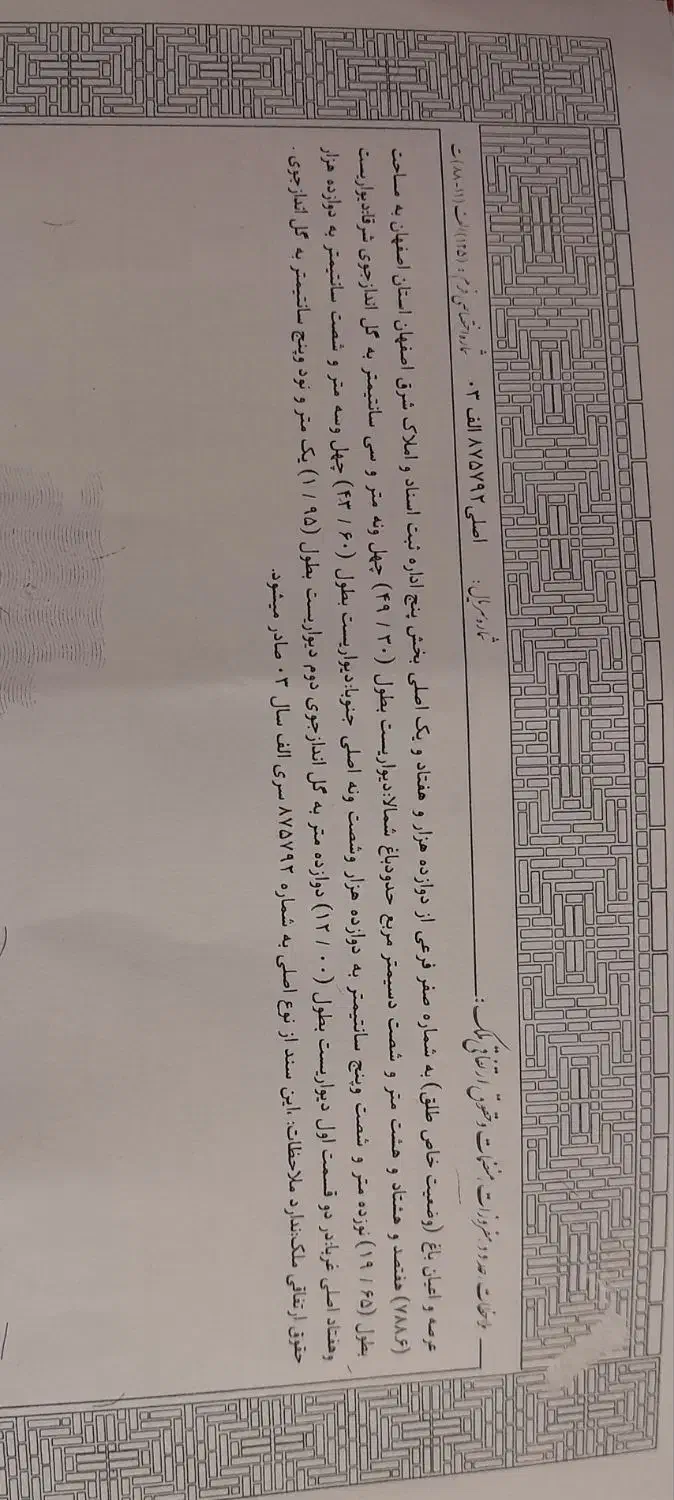 شماره اختصاصی فرم: (۱۲۵) الف (۱۱-۸۸) ت
شماره سریال: اصلی ۸۷۵۷۹۲ الف ۰۳
مشخصات، حدود، مفروزات، منضمات و حقوق ارتفاقی ملک:
عرصه و اعیان باغ (وضعیت خاص طلق) به شماره صفر فرعی از دوازده هزار و هفتاد و یک اصلی بخش پنج اداره ثبت اسناد و املاک شرق اصفهان استان اصفهان به مساحت
(۷۸۸.۶) هفتصد و هشتاد و هشت متر و شصت دسیمتر مربع حدودباغ شمالا:دیواریست بطول (۴۹/۳۰) چهل ونه متر و سی سانتیمتر به گل اندازجوی شرقا:دیواریست
بطول (۱۹/۶۵) نوزده متر و شصت وپنج سانتیمتر به دوازده هزار وشصت ونه اصلی جنوبا:دیواریست بطول (۴۳/۶۰) چهل وسه متر و شصت سانتیمتر به دوازده هزار
وهفتاد اصلی غربا:در دو قسمت اول دیواریست بطول (۱۲/۰۰) دوازده متر به گل اندازجوی دوم دیواریست بطول (۱/۹۵) یک متر و نود وپنج سانتیمتر به گل اندازجوی.
حقوق ارتفاقی ملک:ندارد ملاحظات: ،این سند از نوع اصلی به شماره ۸۷۵۷۹۲ سری الف سال ۰۳ صادر میشود.